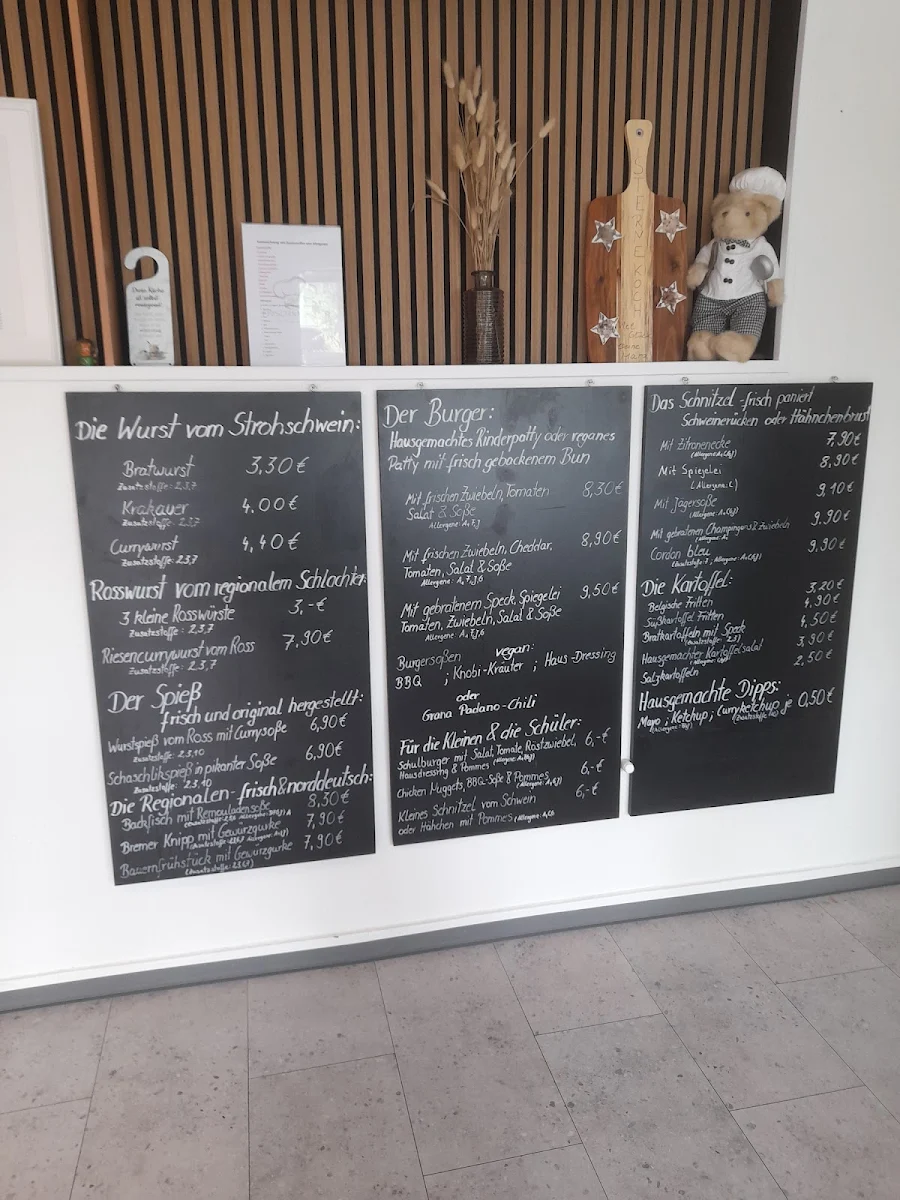 STERNEKOCH
Die Wurst vom Strohschwein:
Bratwurst 3,30€
Zusatzstoffe: 2,3,7
Krakauer 4,00€
Zusatzstoffe: 2,3,7
Currywurst 4,40€
Zusatzstoffe: 2,3,7
Rosswurst vom regionalem Schlachter:
3 kleine Rosswürste 3,-€
Zusatzstoffe: 2,3,7
Riesencurrywurst vom Ross 7,90€
Zusatzstoffe: 2,3,7
Der Spieß
frisch und original hergestellt:
Wurstspieß vom Ross mit Currysoße 6,90€
Zusatzstoffe: 2,3,10
Schaschlikspieß in pikanter Soße 6,90€
Zusatzstoffe: 2,3,10
Die Regionalen - frisch & norddeutsch:
Backfisch mit Remouladensoße 8,30€
Bremer Knipp mit Gewürzgurke 7,90€
Bauernfrühstück mit Gewürzgurke 7,90€
Der Burger:
Hausgemachtes Rinderpatty oder veganes
Patty mit frisch gebackenem Bun
Mit frischen Zwiebeln, Tomaten 8,30€
Salat & Soße
Mit frischen Zwiebeln, Cheddar, 8,90€
Tomaten, Salat & Soße
Mit gebratenem Speck, Spiegelei 9,50€
Tomaten, Zwiebeln, Salat & Soße
Burgersoßen vegan:
BBQ ; Knobi-Kräuter ; Haus-Dressing
oder
Grana Padano-Chili
Für die Kleinen & die Schüler:
Schulburger mit Salat, Tomate, Röstzwiebel, 6,-€
Hausdressing & Pommes
Chicken Nuggets, BBQ-Soße & Pommes 6,-€
Kleines Schnitzel vom Schwein 6,-€
oder Hähchen mit Pommes
Das Schnitzel - frisch paniert
Schweinerücken oder Hähnchenbrust
Mit Zitronenecke 7,90€
Mit Spiegelei 8,90€
Mit Jägersoße 9,10€
Mit gebratenen Champignons & Zwiebeln 9,90€
Cordon bleu 9,90€
Die Kartoffel:
Belgische Fritten 3,20€
Süßkartoffel Fritten 4,90€
Bratkartoffeln mit Speck 4,50€
Hausgemachter Kartoffelsalat 3,90€
Salzkartoffeln 2,50€
Hausgemachte Dipps:
Mayo ; Ketchup ; Curryketchup je 0,50€